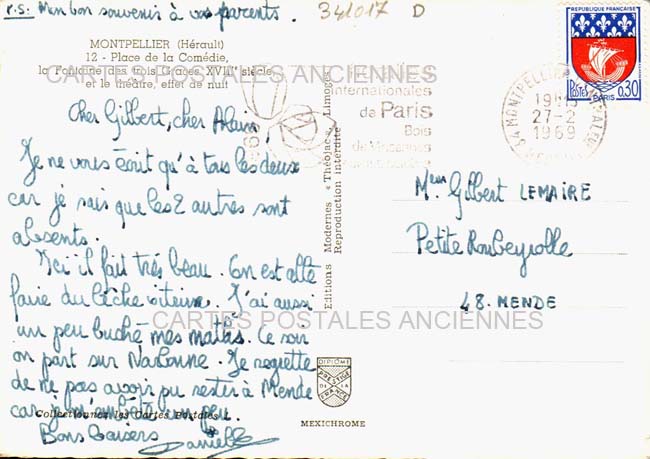 P.S: Mon bon souvenir à vos parents.
341017 D
MONTPELLIER (Hérault)
12 - Place de la Comédie,
la Fontaine des trois Graces XVIIIe siècle
et le théâtre, effet de nuit
CARTES POSTALES ANCIENNES
Internationales
de Paris
Bois
de Vincennes
REPUBLIQUE FRANÇAISE
POSTES PARIS 0,30
34 MONTPELLIER
19H15
27-2
1969
Cher Gilbert, cher Alain,
Je ne vous écrit qu'à tous les deux
car je sais que les 2 autres sont
absents.
Ici il fait très beau. On est allé
faire du lèche vitrine. J'ai aussi
un peu buché mes maths. Ce soir
on part sur Narbonne. Je regrette
de ne pas avoir pu rester à Mende
car je un peu.
Bons baisers Danielle
Collectionnez les Cartes Postales !
Editions Modernes « Théojac », Limoges
Reproduction interdite
Gilbert LEMAIRE
Petite Roubeyrolle
48. MENDE
CARTES POSTALES ANCIENNES
DIPLOME
PRESTIGE
DE LA
FRANCE
MEXICHROME